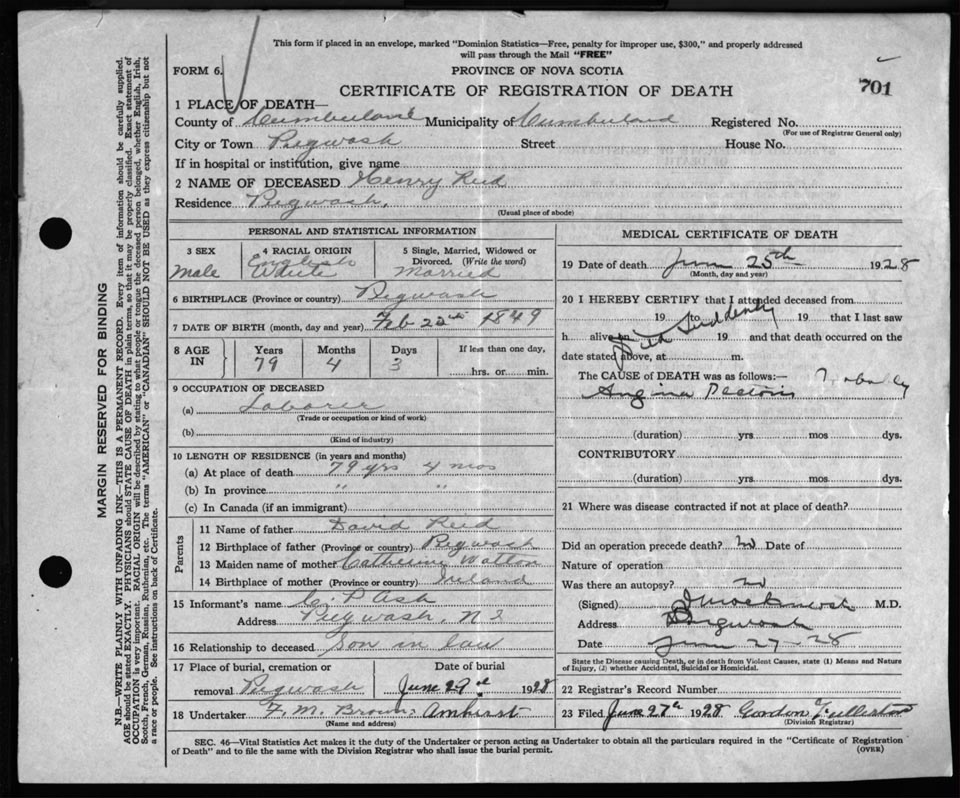 This form if placed in an envelope, marked "Dominion Statistics—Free, penalty for improper use, $300," and properly addressed
will pass through the Mail "FREE"
FORM 6.
PROVINCE OF NOVA SCOTIA
CERTIFICATE OF REGISTRATION OF DEATH
701
1 PLACE OF DEATH—
County of Cumberland Municipality of Cumberland Registered No.
(For use of Registrar General only)
City or Town Pugwash Street House No.
If in hospital or institution, give name
2 NAME OF DECEASED Henry Reid
Residence Pugwash.
(Usual place of abode)
PERSONAL AND STATISTICAL INFORMATION
3 SEX 4 RACIAL ORIGIN 5 Single, Married, Widowed or
Divorced. (Write the word)
English
Male White Married
6 BIRTHPLACE (Province or country) Pugwash
7 DATE OF BIRTH (month, day and year) Feb 22nd 1849
8 AGE IN Years Months Days If less than one day,
79 4 3 hrs. or min.
9 OCCUPATION OF DECEASED
(a) Laborer
(Trade or occupation or kind of work)
(b)
(Kind of industry)
10 LENGTH OF RESIDENCE (in years and months)
(a) At place of death 79 yrs 4 mos
(b) In province " "
(c) In Canada (if an immigrant)
Parents
11 Name of father David Reid
12 Birthplace of father (Province or country) Pugwash
13 Maiden name of mother Catherine Watton
14 Birthplace of mother (Province or country) Ireland
15 Informant's name C. P. Ash
Address Pugwash, N S
16 Relationship to deceased Son in law
17 Place of burial, cremation or Date of burial
removal Pugwash June 29th 1928
18 Undertaker F. M. Brown: Amherst
(Name and address)
MEDICAL CERTIFICATE OF DEATH
19 Date of death June 25th 1928
(Month, day and year)
20 I HEREBY CERTIFY that I attended deceased from
19 to 19 that I last saw
h alive on 19 and that death occurred on the
Died Suddenly
date stated above, at m.
The CAUSE of DEATH was as follows:— Probably
Angina Pectoris
(duration) yrs. mos dys.
CONTRIBUTORY
(duration) yrs. mos dys.
21 Where was disease contracted if not at place of death?
Did an operation precede death? no Date of
Nature of operation
Was there an autopsy? no
(Signed) M.D.
Address Pugwash
Date June 27-28
State the Disease causing Death, or in death from Violent Causes, state (1) Means and Nature
of Injury, (2) whether Accidental, Suicidal or Homicidal.
22 Registrar's Record Number
23 Filed June 27th 1928 Gordon Fullerton
(Division Registrar)
SEC. 46—Vital Statistics Act makes it the duty of the Undertaker or person acting as Undertaker to obtain all the particulars required in the "Certificate of Registration
of Death" and to file the same with the Division Registrar who shall issue the burial permit.
(OVER)
MARGIN RESERVED FOR BINDING
N.B.—WRITE PLAINLY WITH UNFADING INK—THIS IS A PERMANENT RECORD. Every item of information should be carefully supplied.
AGE should be stated EXACTLY. PHYSICIANS should STATE CAUSE OF DEATH in plain terms, so that it may be properly classified. Exact statement of
OCCUPATION is very important. RACIAL ORIGIN will be described by stating to what people or tongue the deceased person belonged, whether English, Irish,
Scotch, French, German, Russian, Ruthenian, etc. The terms "AMERICAN" or "CANADIAN" SHOULD NOT BE USED as they express citizenship but not
a race or people. See instructions on back of Certificate.